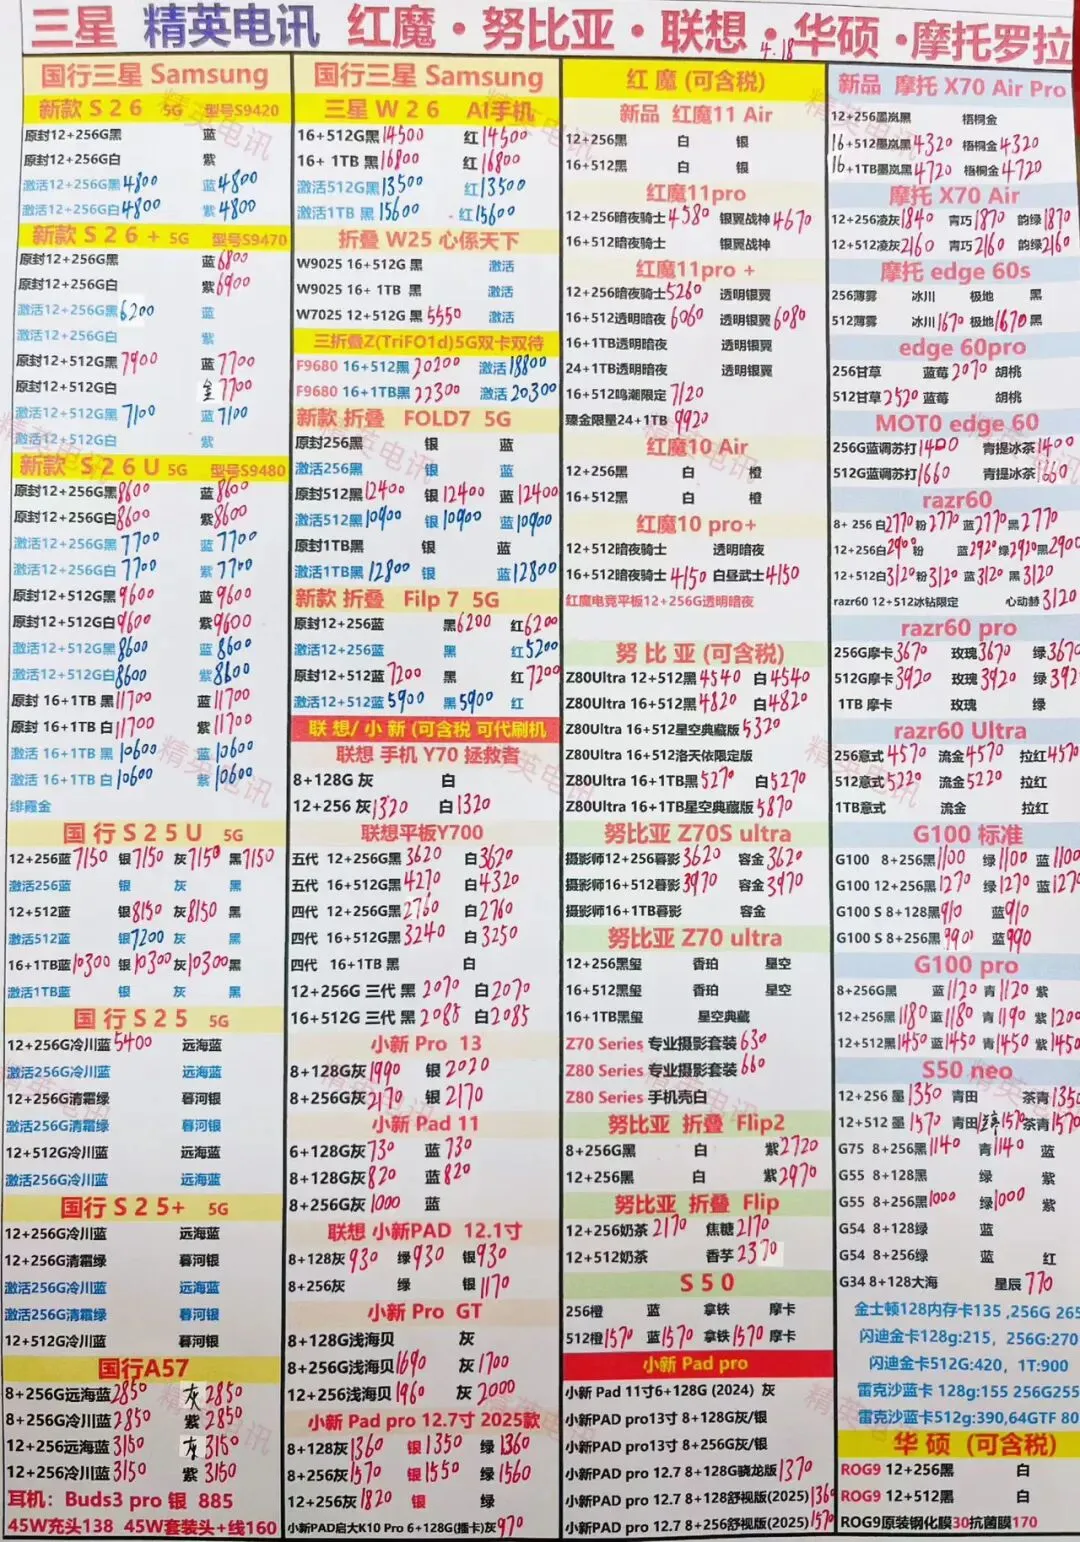 三星 精英电讯 红魔·努比亚·联想·华硕·摩托罗拉
4.18
国行三星 Samsung
新款 S 2 6 5G 型号S9420
原封12+256G黑 蓝
原封12+256G白 紫
激活12+256G黑4800 蓝4800
激活12+256G白4800 紫4800
新款 S 2 6 + 5G 型号S9470
原封12+256G黑 蓝6800
原封12+256G白 紫6900
激活12+256G黑6200 蓝
激活12+256G白 紫
原封12+512G黑7900 蓝7700
原封12+512G白 7700
激活12+512G黑7100 蓝7100
激活12+512G白 紫
新款 S 2 6 U 5G 型号S9480
原封12+256G黑8600 蓝8600
原封12+256G白8600 紫8600
激活12+256G黑7700 蓝7700
激活12+256G白7700 紫7700
原封12+512G黑9600 蓝9600
原封12+512G白9600 紫9600
激活12+512G黑8600 蓝8600
激活12+512G白8600 紫8600
原封 16+1TB 黑11700 蓝11700
原封 16+1TB 白11700 紫11700
激活 16+1TB 黑10600 蓝10600
激活 16+1TB 白10600 紫10600
绯霞金
国 行 S 2 5 U 5G
12+256蓝7150 银7150 灰7150 黑7150
激活256蓝 银 灰 黑
12+512蓝 银8150 灰8150 黑
激活512蓝 银7200 灰 黑
16+1TB蓝10300 银10300 灰10300 黑
激活1TB蓝 银 灰 黑
国 行 S 2 5 5G
12+256G冷川蓝5400 远海蓝
激活256G冷川蓝 远海蓝
12+256G清霜绿 暮河银
激活256G清霜绿 暮河银
12+512G冷川蓝 远海蓝
激活256G冷川蓝 远海蓝
国行 S 2 5+ 5G
12+256G冷川蓝 远海蓝
12+256G清霜绿 暮河银
激活256G冷川蓝 远海蓝
激活256G清霜绿 暮河银
12+512G冷川蓝 暮河银
国行A57
8+256G远海蓝2850 灰2850
8+256G冷川蓝2850 紫2850
12+256远海蓝3150 灰3150
12+256冷川蓝3150 紫3150
耳机：Buds3 pro 银 885
45W充头138 45W套装头+线160
国行三星 Samsung
三星 W 2 6 AI手机
16+512G黑14500 红14500
16+ 1TB 黑16800 红16800
激活512G黑13500 红13500
激活1TB 黑15600 红15600
折叠 W25 心係天下
W9025 16+512G 黑 激活
W9025 16+ 1TB 黑 激活
W7025 12+512G 黑5550 激活
三折叠Z(TriFO1d)5G双卡双待
F9680 16+512黑20200 激活18800
F9680 16+1TB黑22300 激活20300
新款 折叠 FOLD7 5G
原封256黑 银 蓝
激活256黑 银 蓝
原封512黑12400 银12400 蓝12400
激活512黑10900 银10900 蓝10900
原封1TB黑 银 蓝
激活1TB黑12800 银 蓝12800
新款 折叠 Filp 7 5G
原封12+256蓝 黑6200 红6200
激活12+256蓝 黑 红5200
原封12+512蓝7200 黑 红7200
激活12+512蓝5900 黑5900 红
联 想/ 小 新 (可含税 可代刷机
联想 手机 Y70 拯救者
8+128G 灰 白
12+256 灰1320 白1320
联想平板Y700
五代 12+256G黑3620 白3620
五代 16+512G黑4270 白4320
四代 12+256G黑2760 白2760
四代 16+512G黑3240 白3250
四代 16+1TB 黑 白
12+256G 三代 黑2070 白2070
16+512G 三代 黑2085 白2085
小新 Pro 13
8+128G灰1990 银2020
8+256G灰2170 银2170
小新 Pad 11
6+128G灰730 蓝730
8+128G灰820 蓝820
8+256G灰1000 蓝
联想 小新PAD 12.1寸
8+128灰930 绿930 银930
8+256灰 绿 银1170
小新 Pro GT
8+128G浅海贝 灰
8+256G浅海贝1690 灰1700
12+256浅海贝1960 灰2000
小新 Pad pro 12.7寸 2025款
8+128灰1360 银1350 绿1360
8+256灰1570 银1550 绿1560
12+256灰1820 银 绿
小新PAD启大K10 Pro 6+128G(插卡)灰970
红 魔 (可含税)
新品 红魔11 Air
12+256黑 白 银
16+512黑 白 银
红魔11pro
12+256暗夜骑士4580 银翼战神4670
16+512暗夜骑士 银翼战神
红魔11pro +
12+256暗夜骑士5260 透明银翼
16+512透明暗夜6060 透明银翼6080
16+1TB透明暗夜 透明银翼
24+1TB透明暗夜 透明银翼
16+512鸣潮限定7120
臻金限量24+1TB9920
红魔10 Air
12+256黑 白 橙
16+512黑 白 橙
红魔10 pro+
12+512暗夜骑士 透明暗夜
16+512暗夜骑士4150 白昼武士4150
红魔电竞平板12+256G透明暗夜
努 比 亚 (可含税)
Z80Ultra 12+512黑4540 白4540
Z80Ultra 16+512黑4820 白4820
Z80Ultra 16+512星空典藏版5320
Z80Ultra 16+512洛天依限定版
Z80Ultra 16+1TB黑5270 白5270
Z80Ultra 16+1TB星空典藏版5870
努比亚 Z70S ultra
摄影师12+256暮影3620 容金3620
摄影师16+512暮影3970 容金3970
摄影师16+1TB暮影 容金
努比亚 Z70 ultra
12+256黑玺 香珀 星空
16+512黑玺 香珀 星空
16+1TB黑玺 星空典藏
Z70 Series 专业摄影套装630
Z80 Series 专业摄影套装660
Z80 Series 手机壳白
努比亚 折叠 Flip2
8+256G黑 白 紫2720
12+256黑 白 紫2970
努比亚 折叠 Flip
12+256奶茶2170 焦糖2170
12+512奶茶 香芋2370
S 5 0
256橙 蓝 拿铁 摩卡
512橙1570 蓝1570 拿铁1570 摩卡
小新 Pad pro
小新 Pad 11寸6+128G (2024) 灰
小新PAD pro13寸 8+128G灰/银
小新PAD pro13寸 8+256G灰/银
小新PAD pro 12.7 8+128G骁龙版1370
小新PAD pro 12.7 8+128舒视版(2025)1360
小新PAD pro 12.7 8+256舒视版(2025)1570
新品 摩托 X70 Air Pro
12+256墨岚黑 梧桐金
16+512墨岚黑4320 梧桐金4320
16+1TB墨岚黑4720 梧桐金4720
摩托 X70 Air
12+256凌灰1840 青巧1870 韵绿1870
12+512凌灰2160 青巧2160 韵绿2160
摩托 edge 60s
256薄雾 冰川 极地 黑
512薄雾 冰川1670 极地1670 黑
edge 60pro
256甘草 蓝莓2070 胡桃
512甘草2520 蓝莓 胡桃
MOTO edge 60
256G蓝调苏打1400 青提冰茶1400
512G蓝调苏打1660 青提冰茶1660
razr60
8+ 256 白2770 粉2770 蓝2770 黑2770
12+256白2900 粉 蓝2920 绿2920 黑2900
12+512白3120 粉3120 蓝3120 黑3120
razr60 12+512冰钻限定 心动赫3120
razr60 pro
256G摩卡3670 玫瑰3670 绿3670
512G摩卡3920 玫瑰3920 绿392
1TB 摩卡 玫瑰 绿
razr60 Ultra
256意式4570 流金4570 拉红4570
512意式5220 流金5220 拉红
1TB意式 流金 拉红
G100 标准
G100 8+256黑1100 绿1100 蓝1100
G100 12+256黑1270 绿1270 蓝127
G100 S 8+128黑910 蓝910
G100 S 8+256黑990 蓝990
G100 pro
8+256G黑 蓝1120 青1120 紫
12+256黑1180 蓝1180 青1190 紫1200
12+512黑1450 蓝1450 青1450 紫1450
S50 neo
12+256 墨1350 青田 茶青135
12+512 墨1570 青田 1570 茶青1570
G75 8+256黑1140 青1140 蓝
G55 8+128黑 绿 紫
G55 8+256黑1000 绿1000 紫
G54 8+128绿 蓝
G54 8+256绿 蓝 红
G34 8+128大海 星辰770
金士顿128内存卡135 ,256G 265
闪迪金卡128g:215, 256G:270
闪迪金卡512G:420, 1T:900
雷克沙蓝卡 128g:155 256G255
雷克沙蓝卡512g:390,64GTF 80
华 硕 (可含税)
ROG9 12+256黑 白
ROG9 12+512黑 白
ROG9原装钢化膜30抗菌膜170